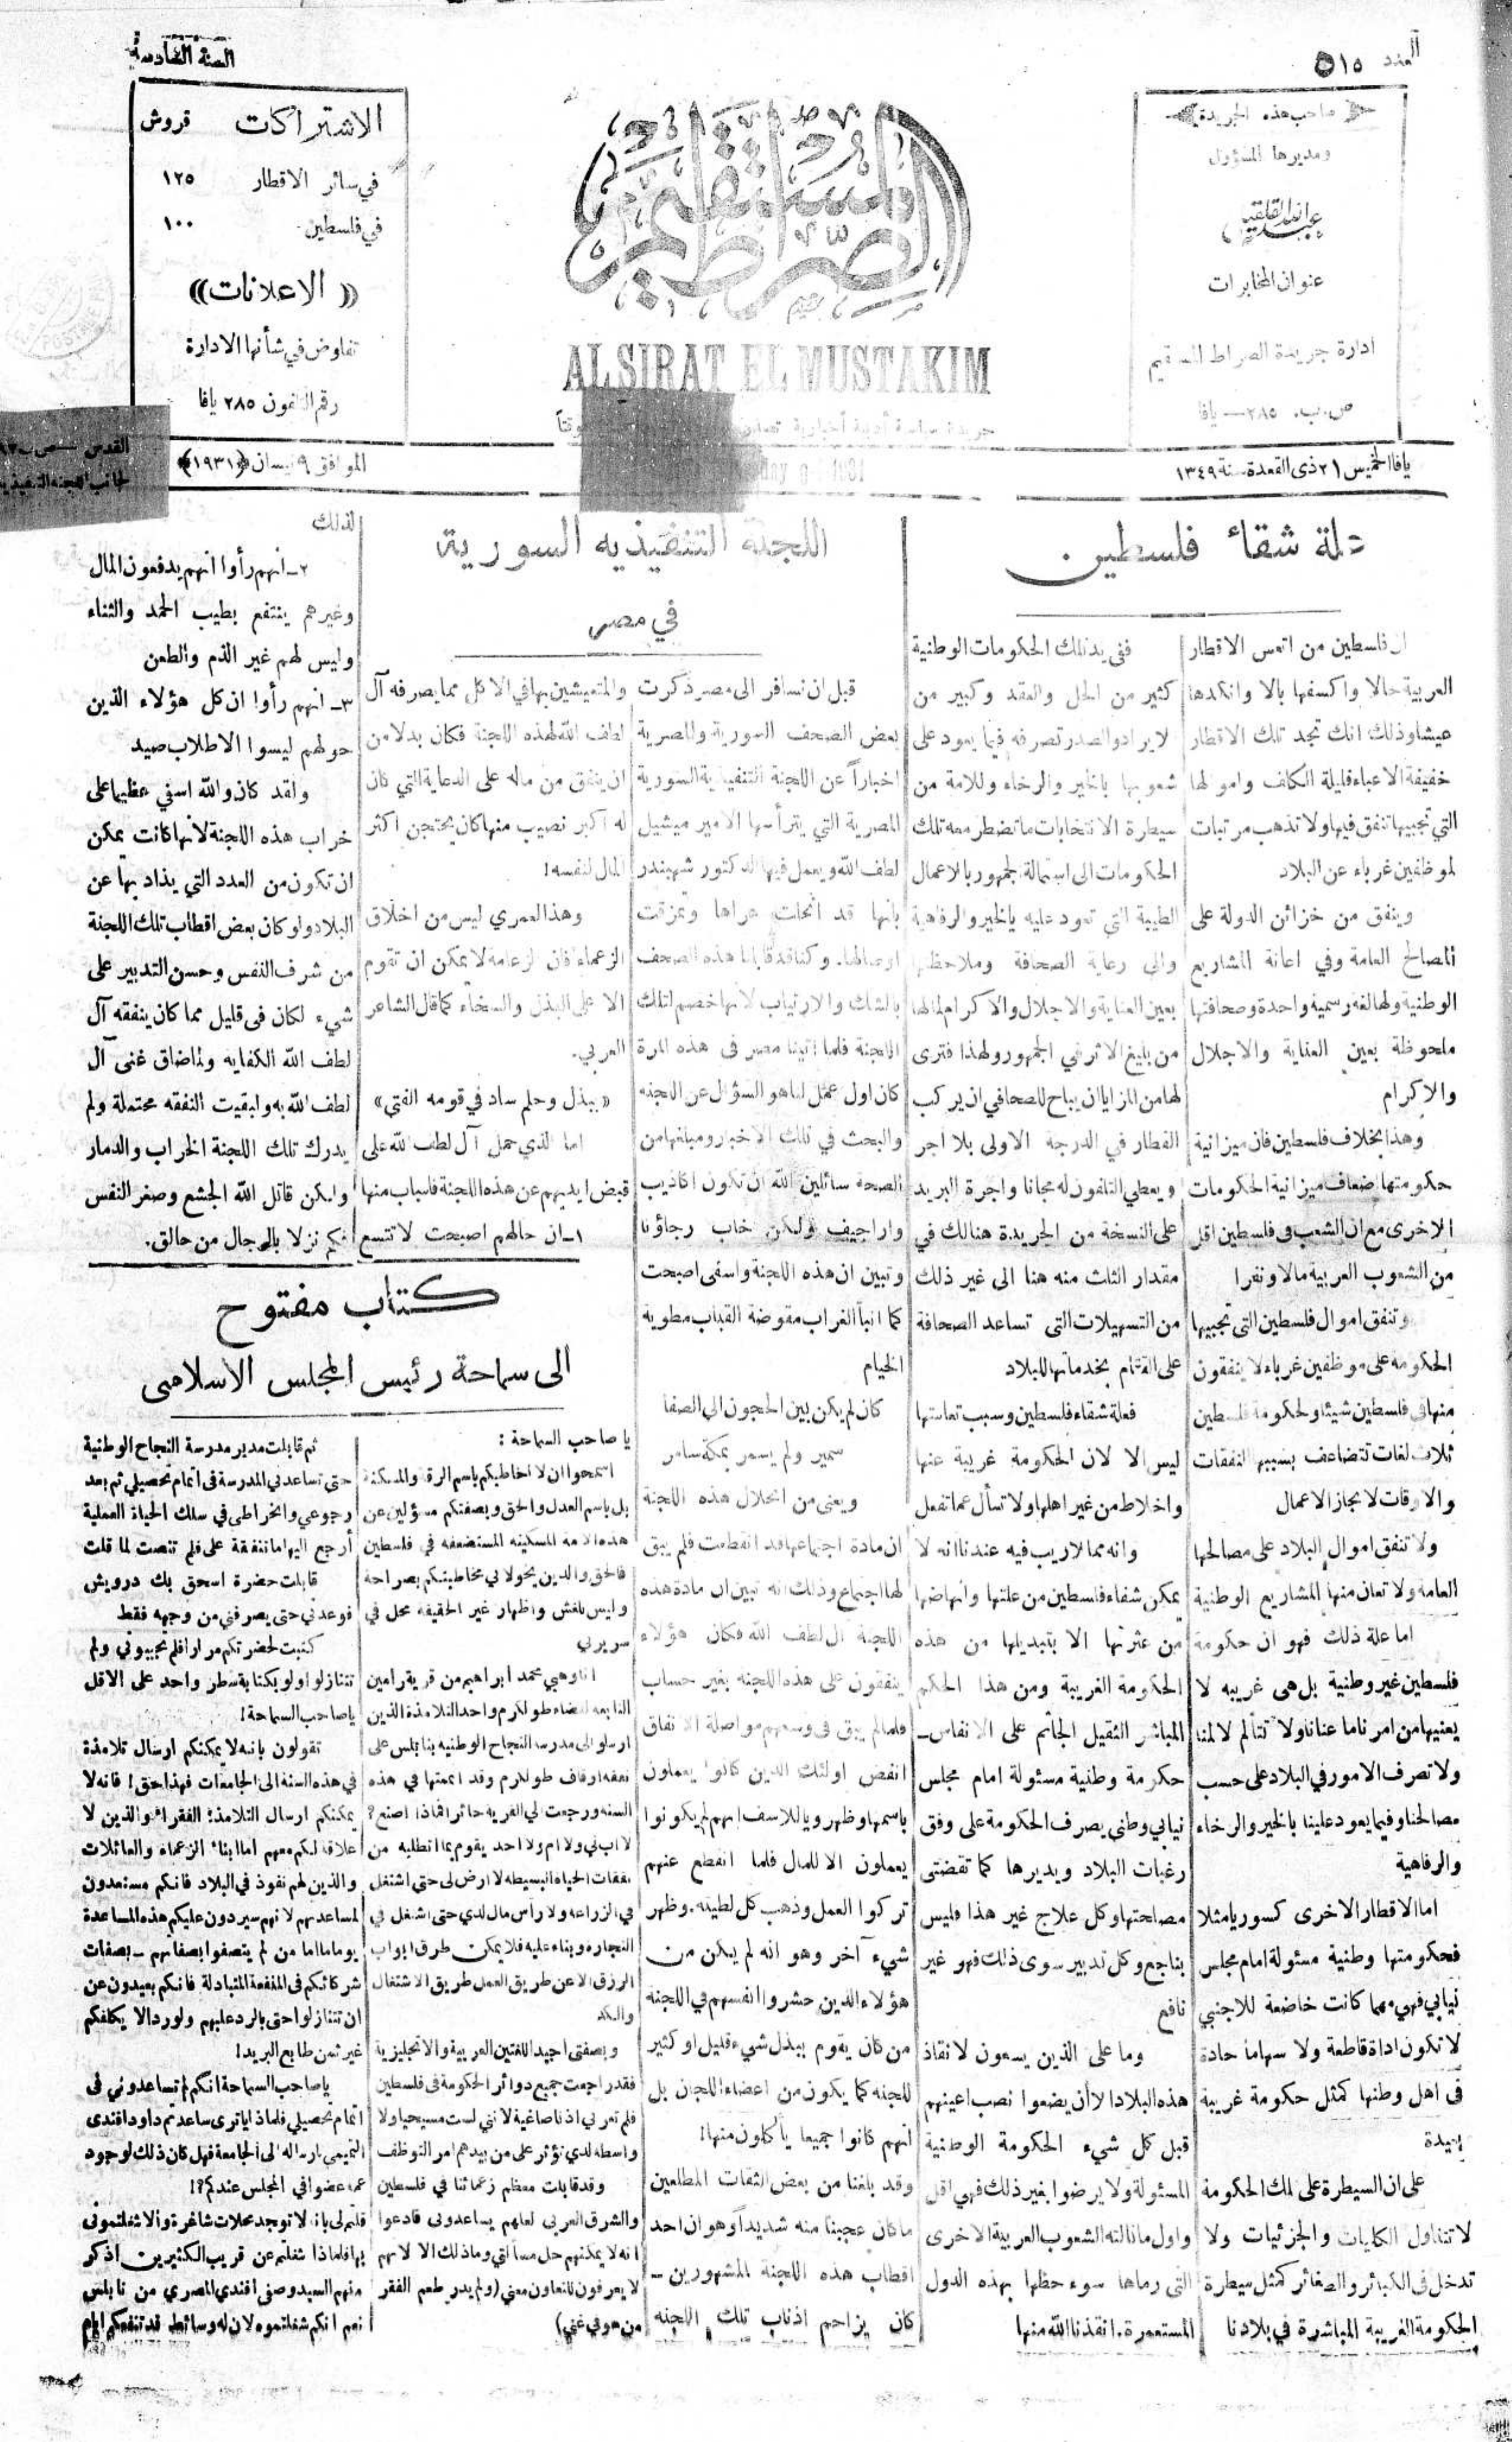 العدد ٥١٥
السنة السادسة
صاحب هذه الجريدة
ومديرها المسؤول
عبدالله القلقيلي
عنوان المخابرات
ادارة جريدة الصراط المستقيم
ص. ب. ٢٨٥ — يافا
الصراط المستقيم
AL SIRAT EL MUSTAKIM
جريدة سياسية أدبية أخبارية
الاشتراكات قروش
في سائر الاقطار ١٢٥
في فلسطين ١٠٠
« الاعلانات »
تفاوض في شأنها الادارة
رقم التلفون ٢٨٥ يافا
يافا الخميس ٢١ ذى القعدة سنة ١٣٤٩
الموافق ٩ نيسان (١٩٣١)
علة شقاء فلسطين
ان فلسطين من اتعس الاقطار
العربية حالا واكسفها بالا وانكدها
عيشا وذلك انك تجد تلك الاقطار
خفيفة الاعباء قليلة الكلف واموالها
التي تجبيها تنفق فيها ولا تذهب مرتبات
لموظفين غرباء عن البلاد
وينفق من خزائن الدولة على
المصالح العامة وفي اعانة المشاريع
الوطنية ولها لغه رسمية واحدة وصحافتها
ملحوظة بعين العناية والاجلال
والاكرام
وهذا بخلاف فلسطين فان ميزانية
حكومتها اضعاف ميزانية الحكومات
الاخرى مع ان الشعب في فلسطين اقل
من الشعوب العربية مالا ونفرا
وتنفق اموال فلسطين التى تجبيها
الحكومة على موظفين غرباء لا ينفقون
منها في فلسطين شيئا ولحكومة فلسطين
ثلاث لغات تتضاعف بسببها النفقات
والاوقات لانجاز الاعمال
ولا تنفق اموال البلاد على مصالحها
العامة ولا تعان منها المشاريع الوطنية
اما علة ذلك فهو ان حكومة
فلسطين غير وطنية بل هى غريبه لا
يعنيها من امرنا ما عنانا ولا تتألم لالمنا
ولا تصرف الامور في البلاد على حسب
مصالحنا وفيما يعود علينا بالخير والرخاء
والرفاهية
اما الاقطار الاخرى كسوريا مثلا
فحكومتها وطنية مسئولة امام مجلس
نيابي فهي مهما كانت خاضعة للاجنبي
لا تكون اداة قاطعة ولا سهاما حادة
في اهل وطنها كمثل حكومة غريبه
بعيدة
على ان السيطرة على تلك الحكومة
لا تتناول الكليات والجزئيات ولا
تدخل في الكبائر والصغائر كمثل سيطرة
الحكومة الغريبة المباشرة في بلادنا
ففي يد تلك الحكومات الوطنية
كثير من الحل والعقد وكبير من
لايراد والصدر تصرفه فيما يعود على
شعوبها بالخير والرخاء وللامة من
سيطرة الانتخابات ما تضطر معه تلك
الحكومات الى استمالة الجمهور بالاعمال
الطيبة التي تعود عليه بالخير والرفاهية
والى رعاية الصحافة وملاحظتها
بعين العناية والاجلال والاكرام لما لها
من بليغ الاثر في الجمهور ولهذا فترى
لها من المزايا ان يباح للصحافي ان يركب
القطار في الدرجة الاولى بلا اجر
ويعطي التلفون له مجانا واجرة البريد
على النسخة من الجريدة هنالك في
مقدار الثلث منه هنا الى غير ذلك
من التسهيلات التى تساعد الصحافة
على القيام بخدماتها للبلاد
فعلة شقاء فلسطين وسبب تعاستها
ليس الا لان الحكومة غريبة عنها
واخلاط من غير اهلها ولا تسأل عما تفعل
وانه مما لا ريب فيه عندنا انه لا
يمكن شفاء فلسطين من علتها وانهاضها
من عثرتها الا بتبديلها من هذه
الحكومة الغريبة ومن هذا الحكم
المباشر الثقيل الجاثم على الانفاس –
حكومة وطنية مسئولة امام مجلس
نيابي وطني يصرف الحكومة على وفق
رغبات البلاد ويديرها كما تقضتى
مصلحتها وكل علاج غير هذا فليس
بناجع وكل تدبير سوى ذلك فهو غير
نافع
وما على الذين يسعون لانقاذ
هذه البلاد الا أن يضعوا نصب اعينهم
قبل كل شيء الحكومة الوطنية
المسئولة ولا يرضوا بغير ذلك فهي اقل
واول ما نالته الشعوب العربية الاخرى
التى رماها سوء حظها بهذه الدول
المستعمرة. انقذنا الله منها
اللجنة التنفيذيه السورية
في مصر
قبل ان نسافر الى مصر ذكرت
بعض الصحف السورية والمصرية
اخباراً عن اللجنة التنفيذية السورية
المصرية التي يترأسها الامير ميشيل
لطف الله ويعمل فيها الدكتور شهبندر
بأنها قد انحلت عراها وتمزقت
اوصالها. وكنا قد قابلنا هذه الصحف
بالشك والارتياب لانها خصم لتلك
اللجنة فلما اتينا مصر فى هذه المرة
كان اول عمل لنا هو السؤال عن اللجنه
والبحث في تلك الاخبار ومبلغها من
الصحة سائلين الله ان تكون اكاذيب
واراجيف ولكن خاب رجاؤنا
وتبين ان هذه اللجنة واسفى اصبحت
كما انبأ الغراب مقوضة القباب مطوية
الخيام
كان لم يكن بين الحجون الى الصفا
سمير ولم يسمر بمكة سامر
ويعنى من انحلال هذه اللجنة
ان مادة اجتماعها قد انقطعت فلم يبق
لها اجتماع وذلك انه تبين ان مادة هذه
اللجنة آل لطف الله فكان هؤلاء
ينفقون على هذه اللجنه بغير حساب
فلما لم يبق فى وسعهم مواصلة الانفاق
انفض اولئك الذين كانوا يعملون
باسمها وظهر ويا للاسف انهم لم يكونوا
يعملون الا للمال فلما انقطع عنهم
تركوا العمل وذهب كل لطيته. وظهر
شيء آخر وهو انه لم يكن من
هؤلاء الذين حشروا انفسهم في اللجنة
من كان يقوم ببذل شيء قليل او كثير
للجنه كما يكون من اعضاء اللجان بل
انهم كانوا جميعا يأكلون منها!
وقد بلغنا من بعض الثقات المطلعين
ما كان عجبنا منه شديداً وهو ان احد
اقطاب هذه اللجنة المشهورين –
كان يزاحم اذناب تلك اللجنه
والمتعيشين بها في الاكل مما يصرفه آل
لطف الله لهذه اللجنة فكان بدلا من
ان ينفق من ماله على الدعاية التي كان
له اكبر نصيب منها كان يحتجن اكثر
المال لنفسه!
وهذا لعمري ليس من اخلاق
الزعماء فان الزعامة لا يمكن ان تقوم
الا على البذل والسخاء كما قال الشاعر
العربي.
« ببذل وحلم ساد في قومه الفتي »
اما الذي حمل آل لطف الله على
قبض ايديهم عن هذه اللجنة فاسباب منها
١ـ ان حالهم اصبحت لا تتسع
لذلك
٢ـ انهم رأوا انهم يدفعون المال
وغيرهم ينتفع بطيب الحمد والثناء
وليس لهم غير الذم والطعن
٣ـ انهم رأوا ان كل هؤلاء الذين
حولهم ليسوا الا طلاب صيد
ولقد كان والله اسفي عظيما على
خراب هذه اللجنة لانها كانت يمكن
ان تكون من العدد التي يذاد بها عن
البلاد ولو كان بعض اقطاب تلك اللجنة
من شرف النفس وحسن التدبير على
شيء لكان في قليل مما كان ينفقه آل
لطف الله الكفايه ولما ضاق غنى آل
لطف الله به ولبقيت النفقه محتملة ولم
يدرك تلك اللجنة الخراب والدمار
ولكن قاتل الله الجشع وصغر النفس
فكم نزلا بالرجال من حالق.
كتاب مفتوح
الى سماحة رئيس المجلس الاسلامى
يا صاحب السماحة :
اسمحوا ان لا اخاطبكم باسم الرقة والمسكنة
بل باسم العدل والحق وبصفتكم مسؤلين عن
هذه الامة المسكينه المستضعفه في فلسطين
فالحق والدين يخولا لي مخاطبتكم بصراحة
وليس للغش واظهار غير الحقيقه محل في
سريرتي
انا وهبي محمد ابراهيم من قرية رامين
التابعه لقضاء طولكرم واحد التلامذة الذين
ارسلوا الى مدرسة النجاح الوطنيه بنابلس على
نفقه اوقاف طولكرم وقد اتممتها في هذه
السنه ورجعت لي القرية حائرا فماذا اصنع؟
لا اب لي ولا ام ولا احد يقوم بما اتطلبه من
نفقات الحياة البسيطه لا ارض لى حتى اشتغل
في الزراعه ولا رأس مال لدي حتى اشتغل في
التجارة وبناء عليه فلا يمكن طرق ابواب
الرزق الا عن طريق العمل طريق الاشتغال
والكد
وبصفتى اجيد اللغتين العربية والانجليزية
فقد راجعت جميع دوائر الحكومة فى فلسطين
فلم تعرني اذنا صاغية لانني لست مسيحيا ولا
واسطه لدي تؤثر على من بيدهم امر التوظف
وقد قابلت معظم زعمائنا في فلسطين
والشرق العربى لعلهم يساعدونى فادعوا
انه لا يمكنهم حل مسألتي وما ذلك الا لانهم
لا يعرفون للتعاون معني (ولم يدر طعم الفقر
من هو في غنى)
ثم قابلت مدير مدرسة النجاح الوطنية
حتى تساعدني المدرسة فى اتمام تحصيلي ثم بعد
رجوعي وانخراطى في سلك الحياة العملية
أرجع اليها ما تنفقة على فلم تنصت لما قلت
قابلت حضرة اسحق بك درويش
فوعدني حتى يصرفني من وجهه فقط
كتبت لحضرتكم مرارا فلم تجيبوني ولم
تتنازلوا ولو بكتابة سطر واحد على الاقل
يا صاحب السماحة!
تقولون بانه لا يمكنكم ارسال تلامذة
في هذه السنة الى الجامعات فهذا حق! فانه لا
يمكنكم ارسال التلامذة الفقراء والذين لا
علاقة لكم معهم اما ابناء الزعماء والعائلات
والذين لهم نفوذ في البلاد فانكم مستعدون
لمساعدتهم لانهم سيردون عليكم هذه المساعدة
يوما ما اما من لم يتصفوا بصفاتهم – بصفات
شركائكم فى المنفعة المتبادلة فانكم بعيدون عن
ان تتنازلوا حتى بالرد عليهم ولو رد الا يكلفكم
غير ثمن طابع البريد!
يا صاحب السماحة انكم لم تساعدوني فى
اتمام تحصيلي فلماذا ياترى ساعدتم داود افندى
التميمى بارساله الى الجامعة فهل كان ذلك لوجود
عمه عضوا في المجلس عندكم؟!
قلتم لى بانه لا توجد محلات شاغرة والا شغلتمونى
بها فلماذا شغلتم عن قريب الكثيرين اذكر
منهم السيد وصفى افندى المصري من نابلس
نعم انكم شغلتموه لان له وسائط قد تنفعكم ايام
القدس – ص ب
لجانب اللجنة التنفيذية